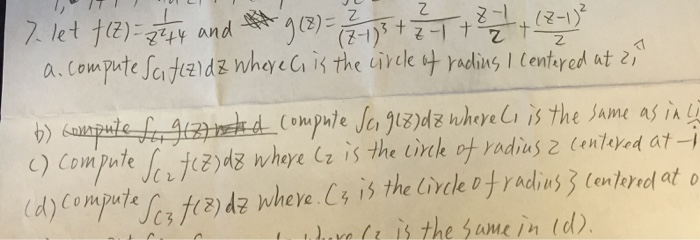 7. let f(z) = 1/(z²+4) and g(z) = 2/(z-1)³ + 2/(z-1) + (z-1)/2 + (z-1)²/2
a. compute ∫c₁ f(z)dz where C₁ is the circle of radius 1 centered at 2i
b) compute ∫c₁ g(z) compute ∫c₁ g(z)dz where C₁ is the same as in
c) compute ∫c₂ f(z)dz where C₂ is the circle of radius 2 centered at -1
(d) compute ∫c₃ f(z)dz where. C₃ is the circle of radius 3 centered at 0
is the same in (d).